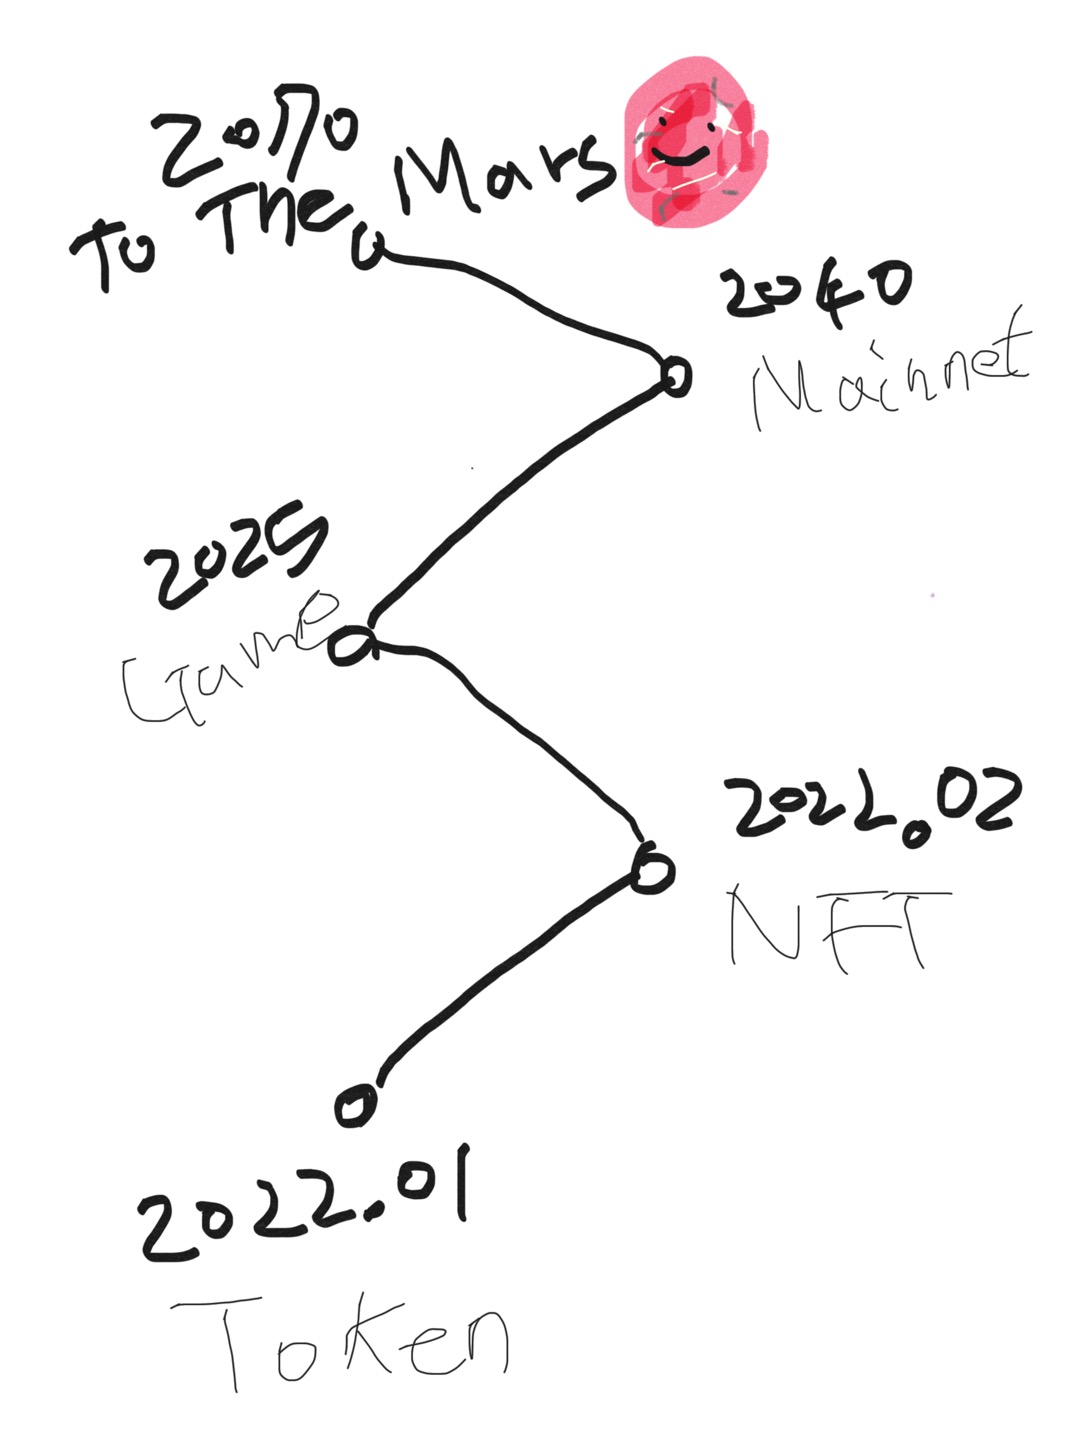 2070
To The Mars
2040
Mainnet
2025
Game
2022.02
NFT
2022.01
Token